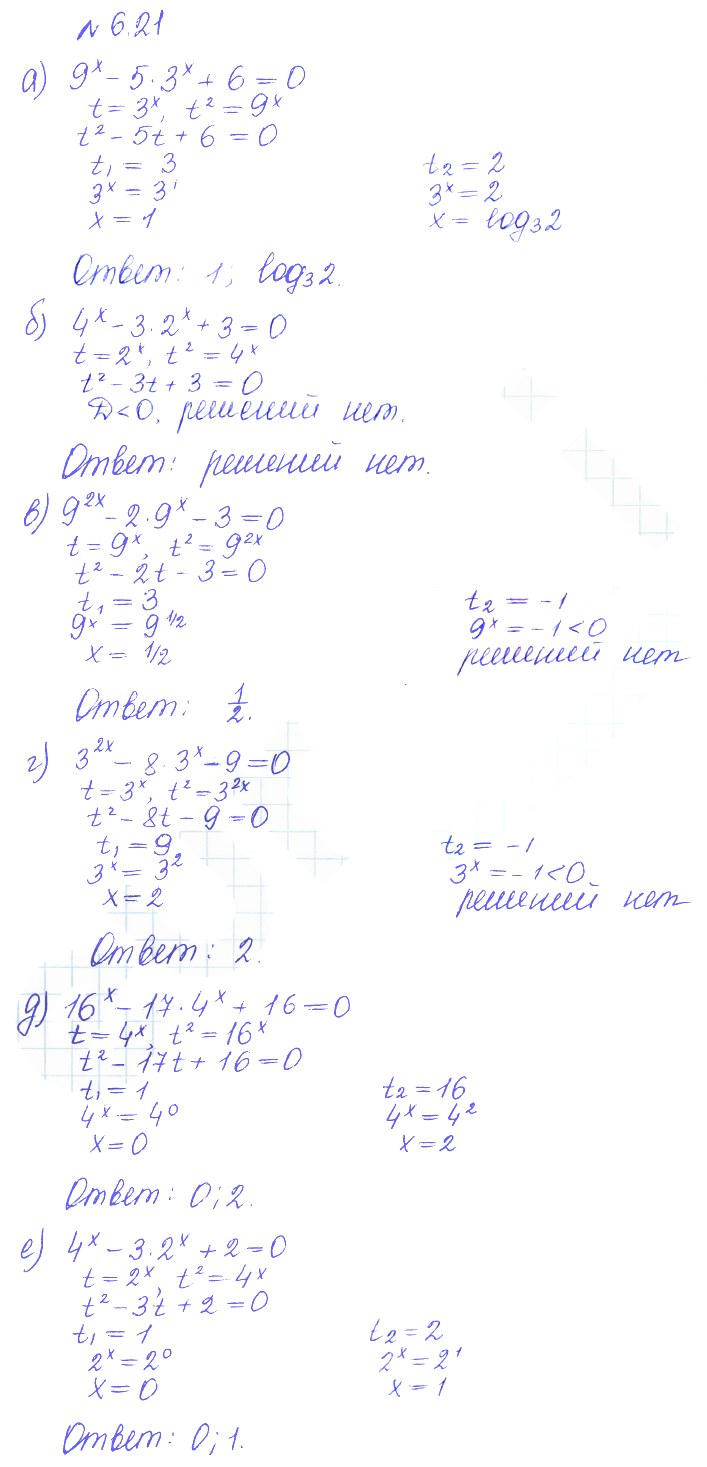 № 6.21
а) 9^x - 5·3^x + 6 = 0
t = 3^x, t² = 9^x
t² - 5t + 6 = 0
t₁ = 3 t₂ = 2
3^x = 3¹ 3^x = 2
x = 1 x = log₃2
Ответ: 1; log₃2.
б) 4^x - 3·2^x + 3 = 0
t = 2^x, t² = 4^x
t² - 3t + 3 = 0
D < 0, решений нет.
Ответ: решений нет.
в) 9^2x - 2·9^x - 3 = 0
t = 9^x, t² = 9^2x
t² - 2t - 3 = 0
t₁ = 3 t₂ = -1
9^x = 9^1/2 9^x = -1 < 0
x = 1/2 решений нет
Ответ: 1/2.
г) 3^2x - 8·3^x - 9 = 0
t = 3^x, t² = 3^2x
t² - 8t - 9 = 0
t₁ = 9 t₂ = -1
3^x = 3² 3^x = -1 < 0
x = 2 решений нет
Ответ: 2.
д) 16^x - 17·4^x + 16 = 0
t = 4^x, t² = 16^x
t² - 17t + 16 = 0
t₁ = 1 t₂ = 16
4^x = 4⁰ 4^x = 4²
x = 0 x = 2
Ответ: 0; 2.
е) 4^x - 3·2^x + 2 = 0
t = 2^x, t² = 4^x
t² - 3t + 2 = 0
t₁ = 1 t₂ = 2
2^x = 2⁰ 2^x = 2¹
x = 0 x = 1
Ответ: 0; 1.